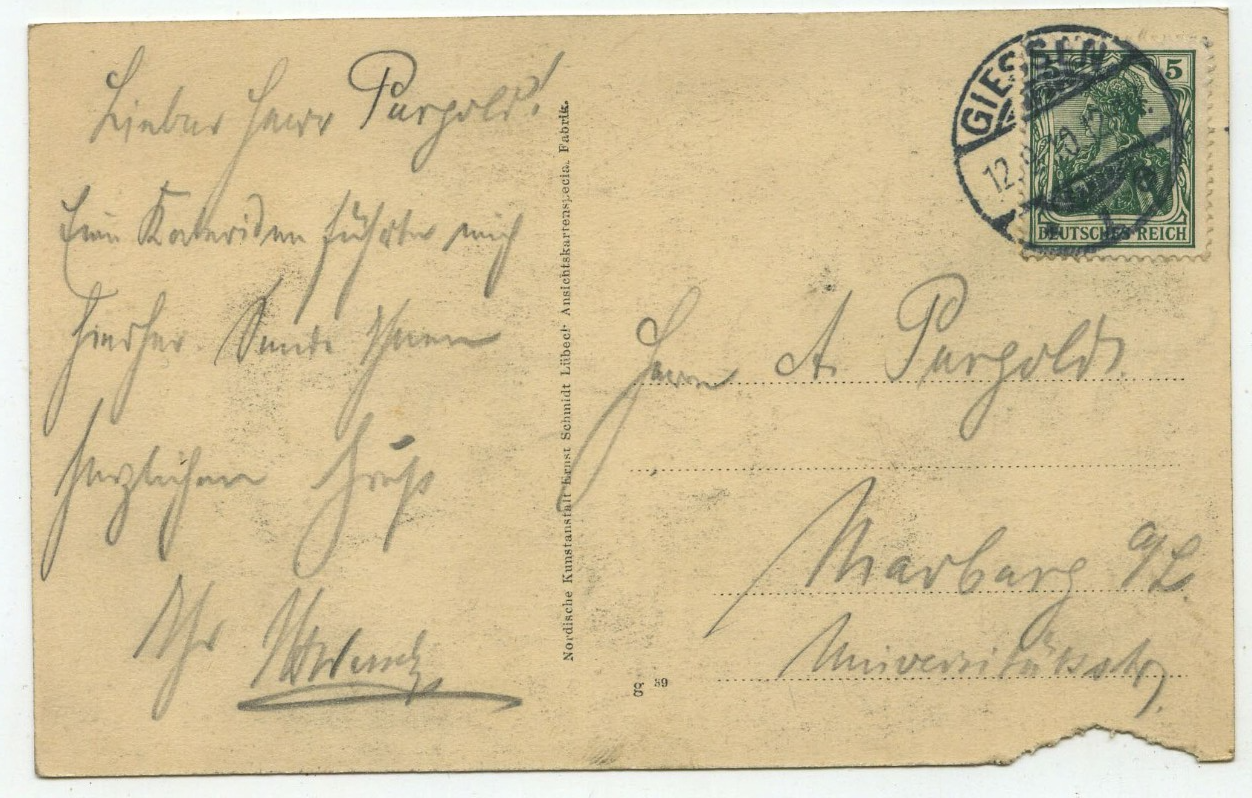 Lieber Herr Purgold!
Eine Radtour führte mich
hierher. Sende Ihnen
herzlichen Gruß
Ihr
Nordische Kunstanstalt Ernst Schmidt Lübeck Ansichtskartenspecial Fabrik.
39
GIESSEN
12.
5
DEUTSCHES REICH
Herrn A. Purgold.
Marburg a/L.
Universitätsstr.